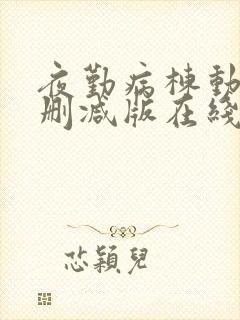 夜勤病棟動
删减版在綫
芯颖兒